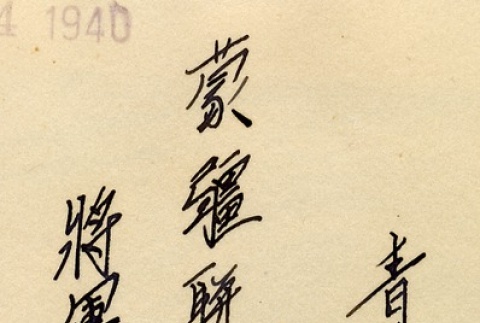 4 1940
青
蒙疆聯
將軍